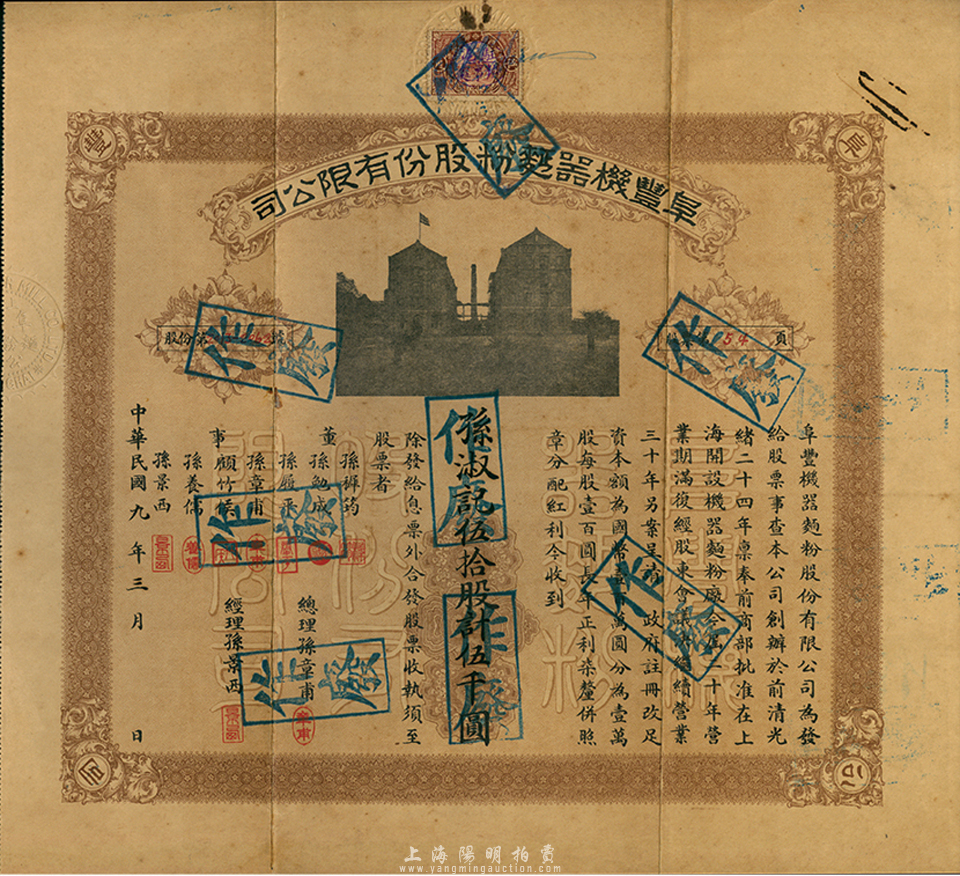 阜豐機器麵粉股份有限公司
股份第
號
54
頁
阜豐機器麵粉股份有限公司為發
給股票事查本公司創辦於前清光
緒二十四年稟奉前商部批准在上
海開設機器麵粉廠今屆二十年營
業期滿復經股東會
續營業
三十年另案呈請政府註冊改足
資本額為國幣壹百萬圓分為壹萬
股每股壹百圓長年正利柒釐併照
章分配紅利今收到
孫淑記伍拾股計伍千圓
除發給息票外合發股票收執須至
股票者
董
事
孫
筠
孫勉成
孫履平
孫章甫
顧竹候
孫養儒
孫景西
總理孫章甫
經理孫景西
中華民國九年三月 日
作廢
作廢
作廢
作廢
作廢
作廢
作廢
上海陽明拍賣
www.yangmingauction.com